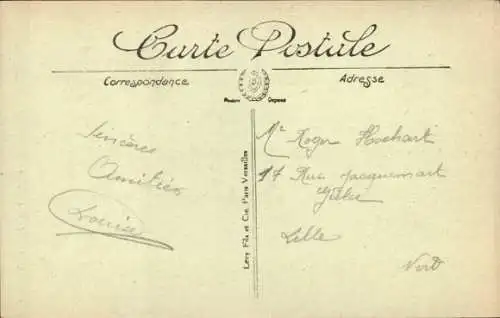 Carte Postale
Correspondance
Adresse
Sincères
Amitiés
Louise
Lévy Fils et Cie, Paris Versailles
Mr Roger Hochart
17 Rue Jacquemart
Giélée
Lille
Nord